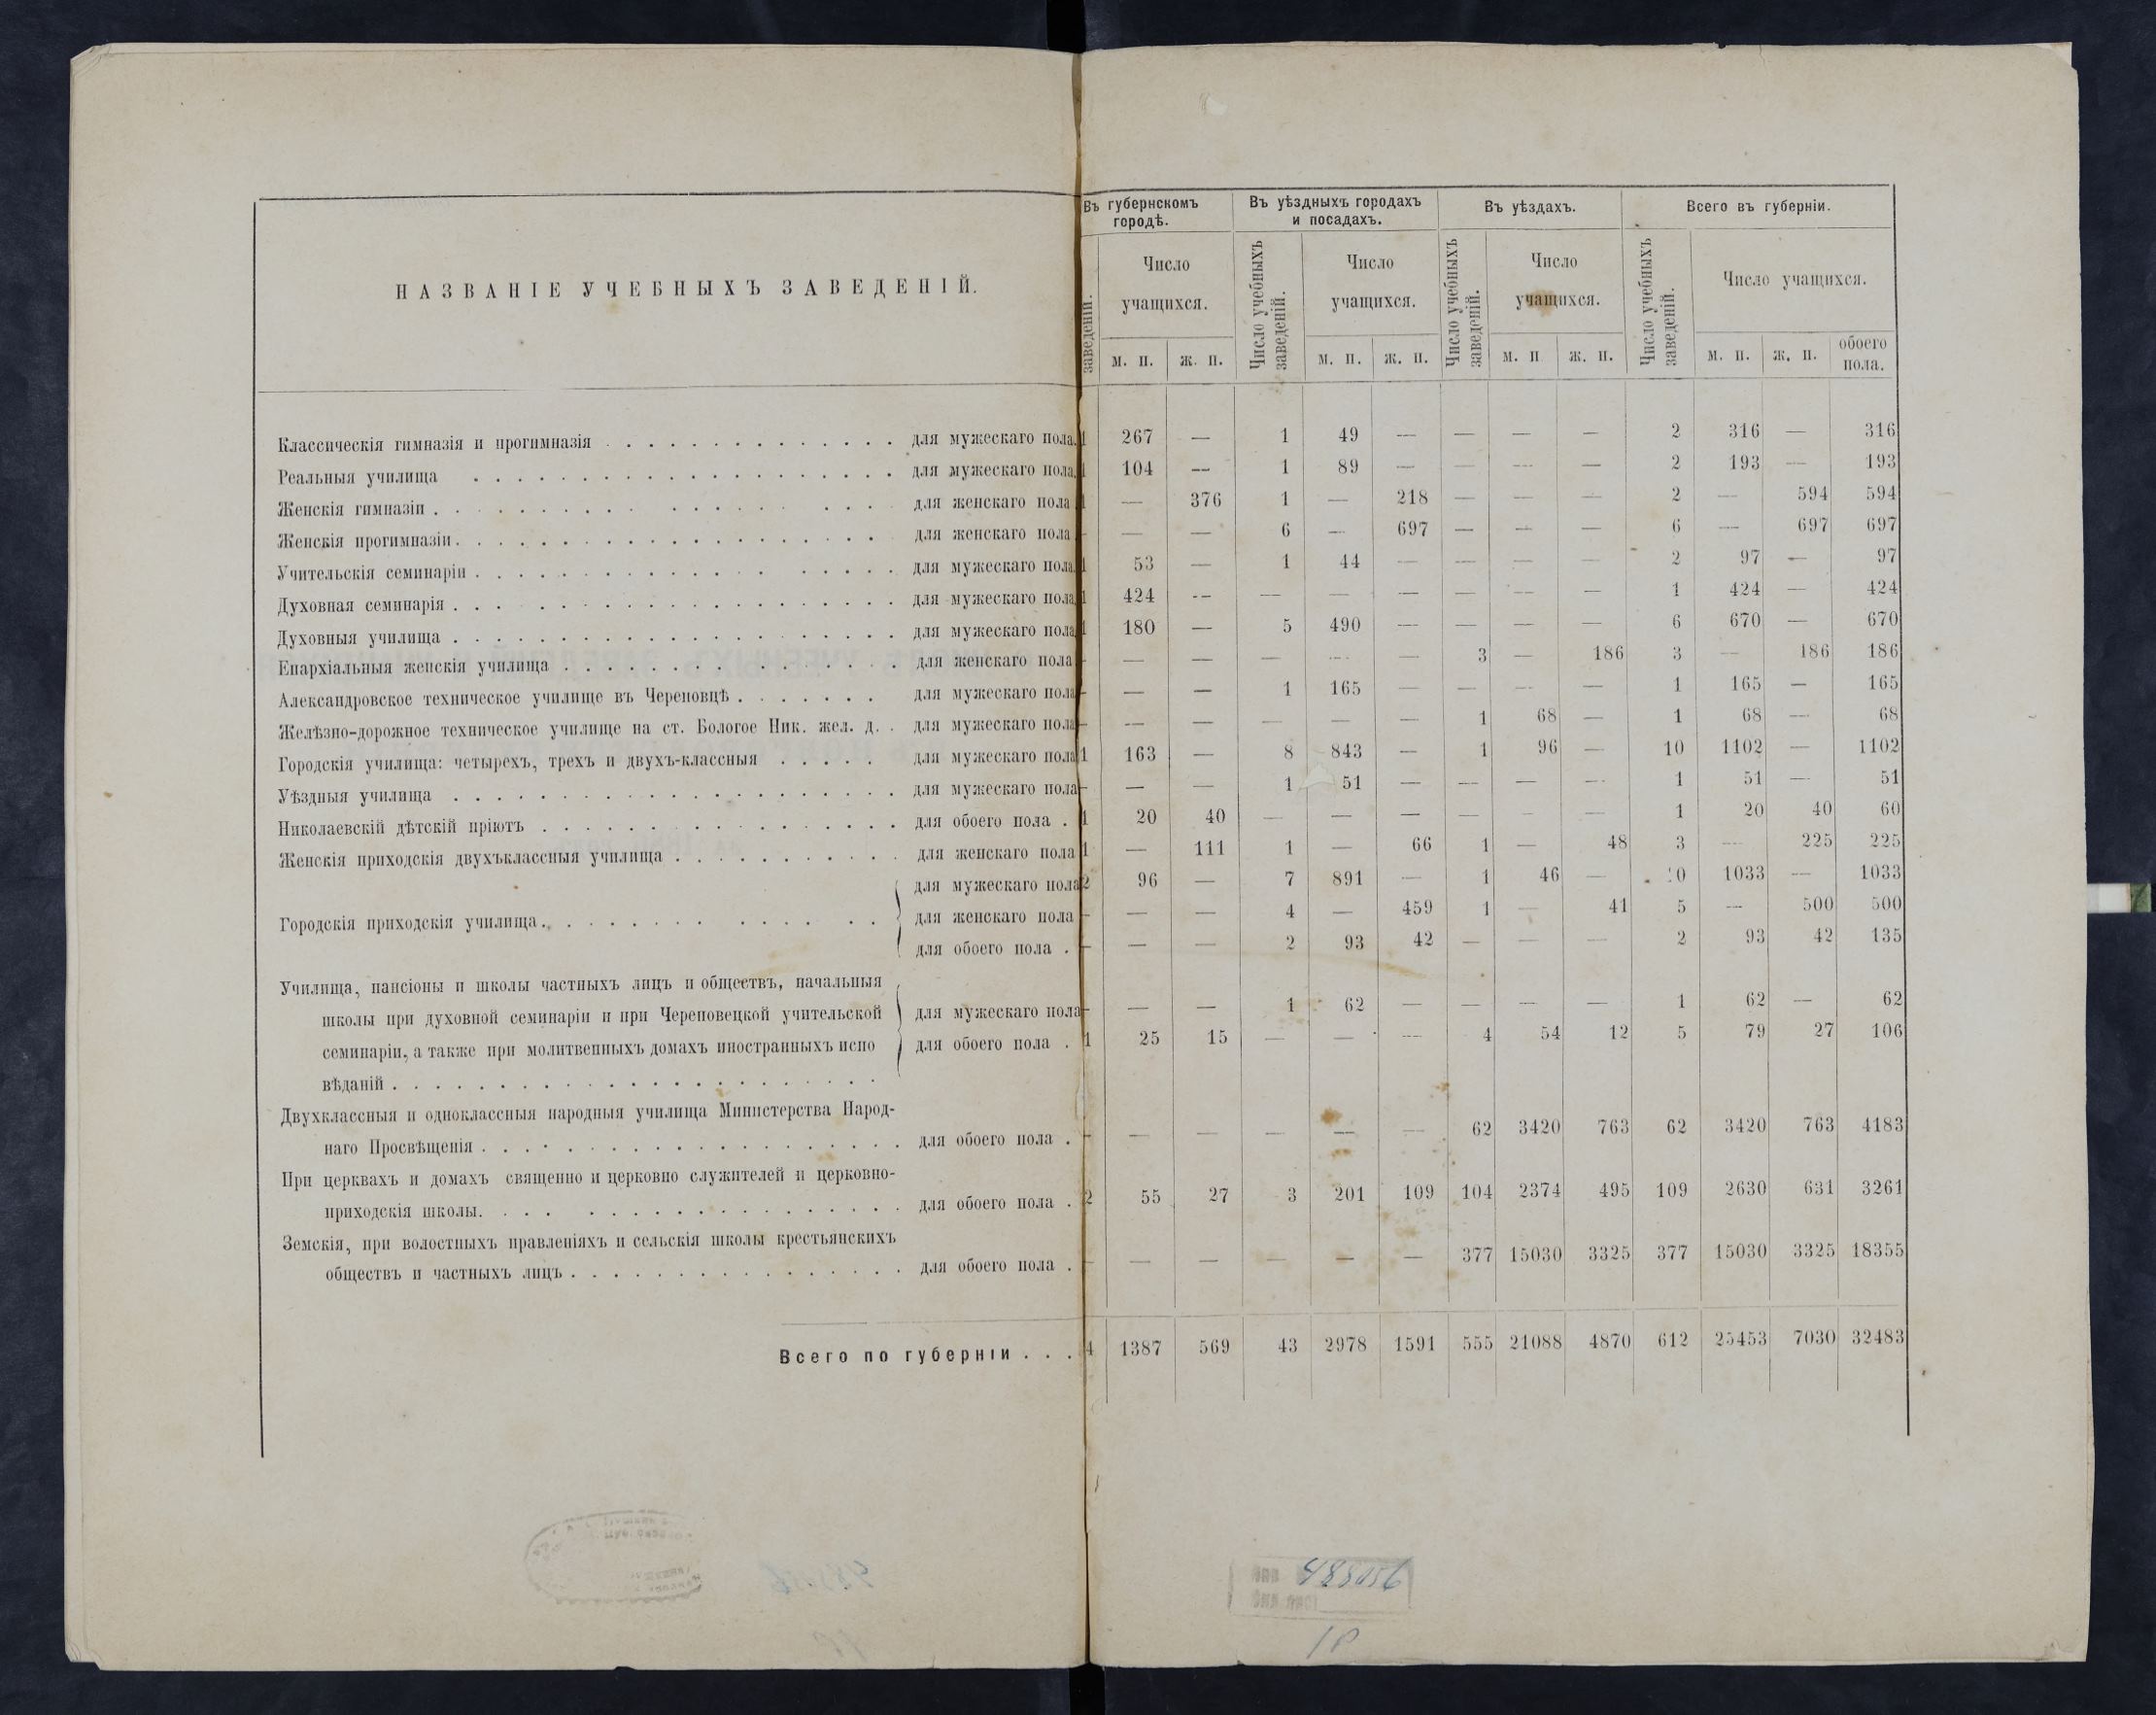 НАЗВАНІЕ УЧЕБНЫХЪ ЗАВЕДЕНІЙ.
Въ губернскомъ городѣ.
Въ уѣздныхъ городахъ и посадахъ.
Въ уѣздахъ.
Всего въ губерніи.
заведеній.
Число учащихся.
Число учебныхъ заведеній.
Число учащихся.
Число учебныхъ заведеній.
Число учащихся.
Число учебныхъ заведеній.
Число учащихся.
м. п. ж. п. м. п. ж. п. м. п ж. п. м. п. ж. п. обоего пола.
Классическія гимназія и прогимназія . . . . . . . . . . . . . . для мужескаго пола. 1 267 — 1 49 — — — — 2 316 — 316
Реальныя училища . . . . . . . . . . . . . . . . . . . . для мужескаго пола. 1 104 — 1 89 — — — — 2 193 — 193
Женскія гимназіи . . . . . . . . . . . . . . . . . . . для женскаго пола 1 — 376 1 — 218 — — — 2 — 594 594
Женскія прогимназіи. . . . . . . . . . . . . . . . . . . . для женскаго пола — — — 6 — 697 — — — 6 — 697 697
Учительскія семинаріи . . . . . . . . . . . . . . . . . . . для мужескаго пола. 1 53 — 1 44 — — — — 2 97 — 97
Духовная семинарія . . . . . . . . . . . . . . . . . . . . для мужескаго пола 1 424 — — — — — — — 1 424 — 424
Духовныя училища . . . . . . . . . . . . . . . . . . . . . для мужескаго пола 1 180 — 5 490 — — — — 6 670 — 670
Епархіальныя женскія училища . . . . . . . . . . . . . . . . для женскаго пола — — — — — — 3 — 186 3 — 186 186
Александровское техническое училище въ Череповцѣ . . . . . . . для мужескаго пола — — — 1 165 — — — — 1 165 — 165
Желѣзно-дорожное техническое училище на ст. Бологое Ник. жел. д. . для мужескаго пола — — — — — — 1 68 — 1 68 — 68
Городскія училища: четырехъ, трехъ и двухъ-классныя . . . . . для мужескаго пола 1 163 — 8 843 — 1 96 — 10 1102 — 1102
Уѣздныя училища . . . . . . . . . . . . . . . . . . . . . для мужескаго пола — — — 1 51 — — — — 1 51 — 51
Николаевскій дѣтскій пріютъ . . . . . . . . . . . . . . . . . для обоего пола . 1 20 40 — — — — — — 1 20 40 60
Женскія приходскія двухъклассныя училища . . . . . . . . . . . для женскаго пола 1 — 111 1 — 66 1 — 48 3 — 225 225
для мужескаго пола 2 96 — 7 891 — 1 46 — 10 1033 — 1033
Городскія приходскія училища. . . . . . . . . . . . . . для женскаго пола — — — 4 — 459 1 — 41 5 — 500 500
для обоего пола . — — — 2 93 42 — — — 2 93 42 135
Училища, пансіоны и школы частныхъ лицъ и обществъ, начальныя
школы при духовной семинаріи и при Череповецкой учительской для мужескаго пола — — — 1 62 — — — — 1 62 — 62
семинаріи, а также при молитвенныхъ домахъ иностранныхъ испо для обоего пола . 1 25 15 — — — 4 54 12 5 79 27 106
вѣданій . . . . . . . . . . . . . . . . . . . . . . .
Двухклассныя и одноклассныя народныя училища Министерства Народ-
наго Просвѣщенія . . . . . . . . . . . . . . . . . . . . для обоего пола . — — — — — — 62 3420 763 62 3420 763 4183
При церквахъ и домахъ священно и церковно служителей и церковно-
приходскія школы. . . . . . . . . . . . . . . . . . . для обоего пола . 2 55 27 3 201 109 104 2374 495 109 2630 631 3261
Земскія, при волостныхъ правленіяхъ и сельскія школы крестьянскихъ
обществъ и частныхъ лицъ . . . . . . . . . . . . . . . . для обоего пола . — — — — — — 377 15030 3325 377 15030 3325 18355
Всего по губерніи . . . 4 1387 569 43 2978 1591 555 21088 4870 612 25453 7030 32483